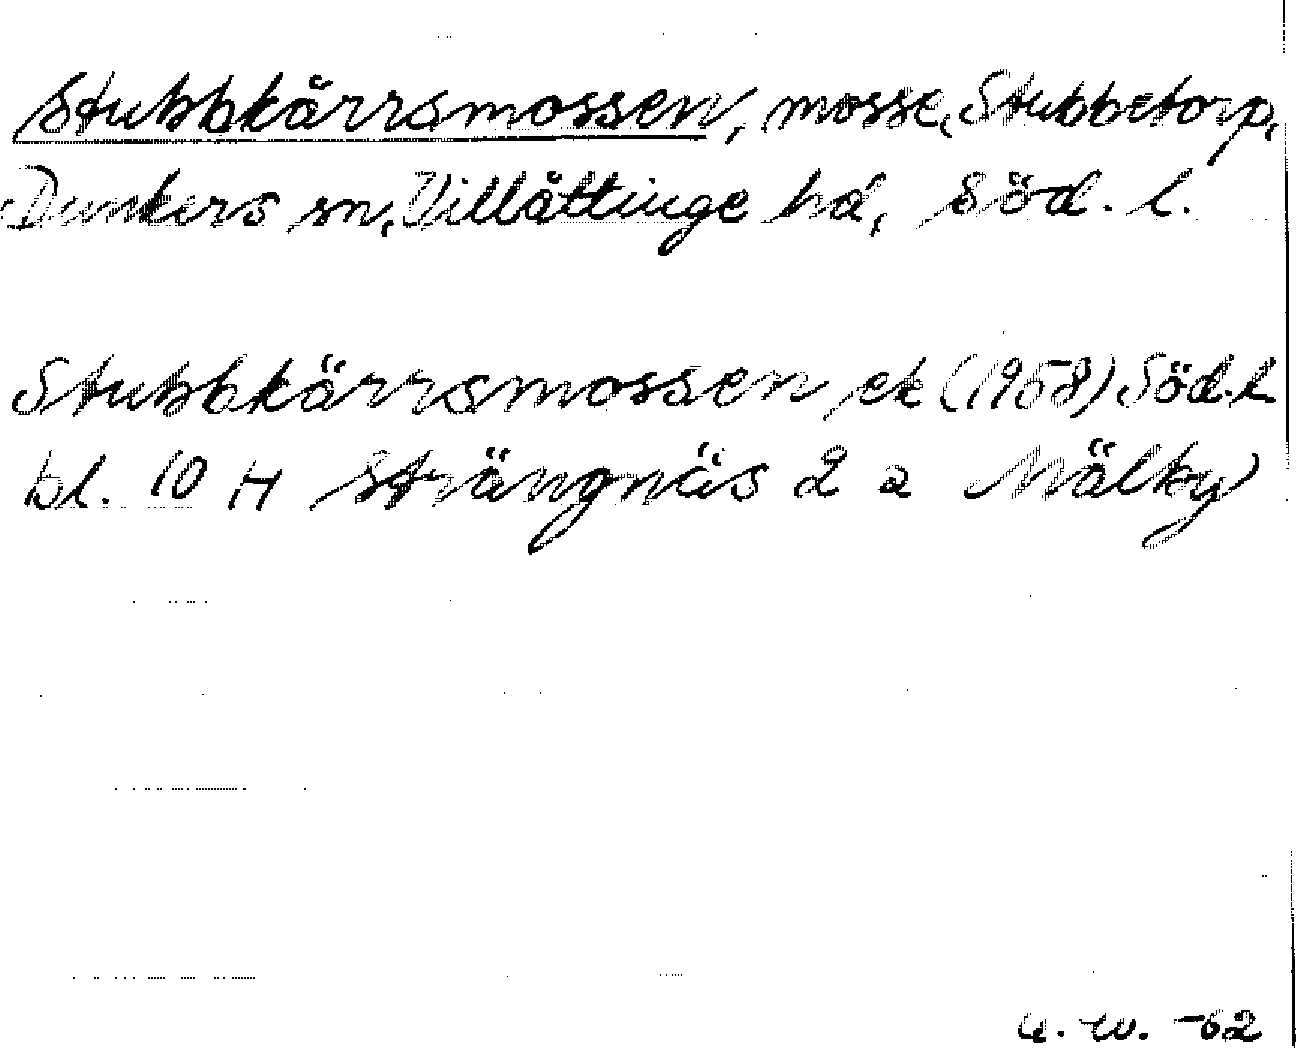 Stubbkärrsmossen, mosse, Stubbetorp,
Dunkers sn, Villåttinge hd, Söd. l.
Stubbkärrsmossen ek (1958) Söd.l.
bl. 10 H Strängnäs 2 a Mälby
U. W. -62